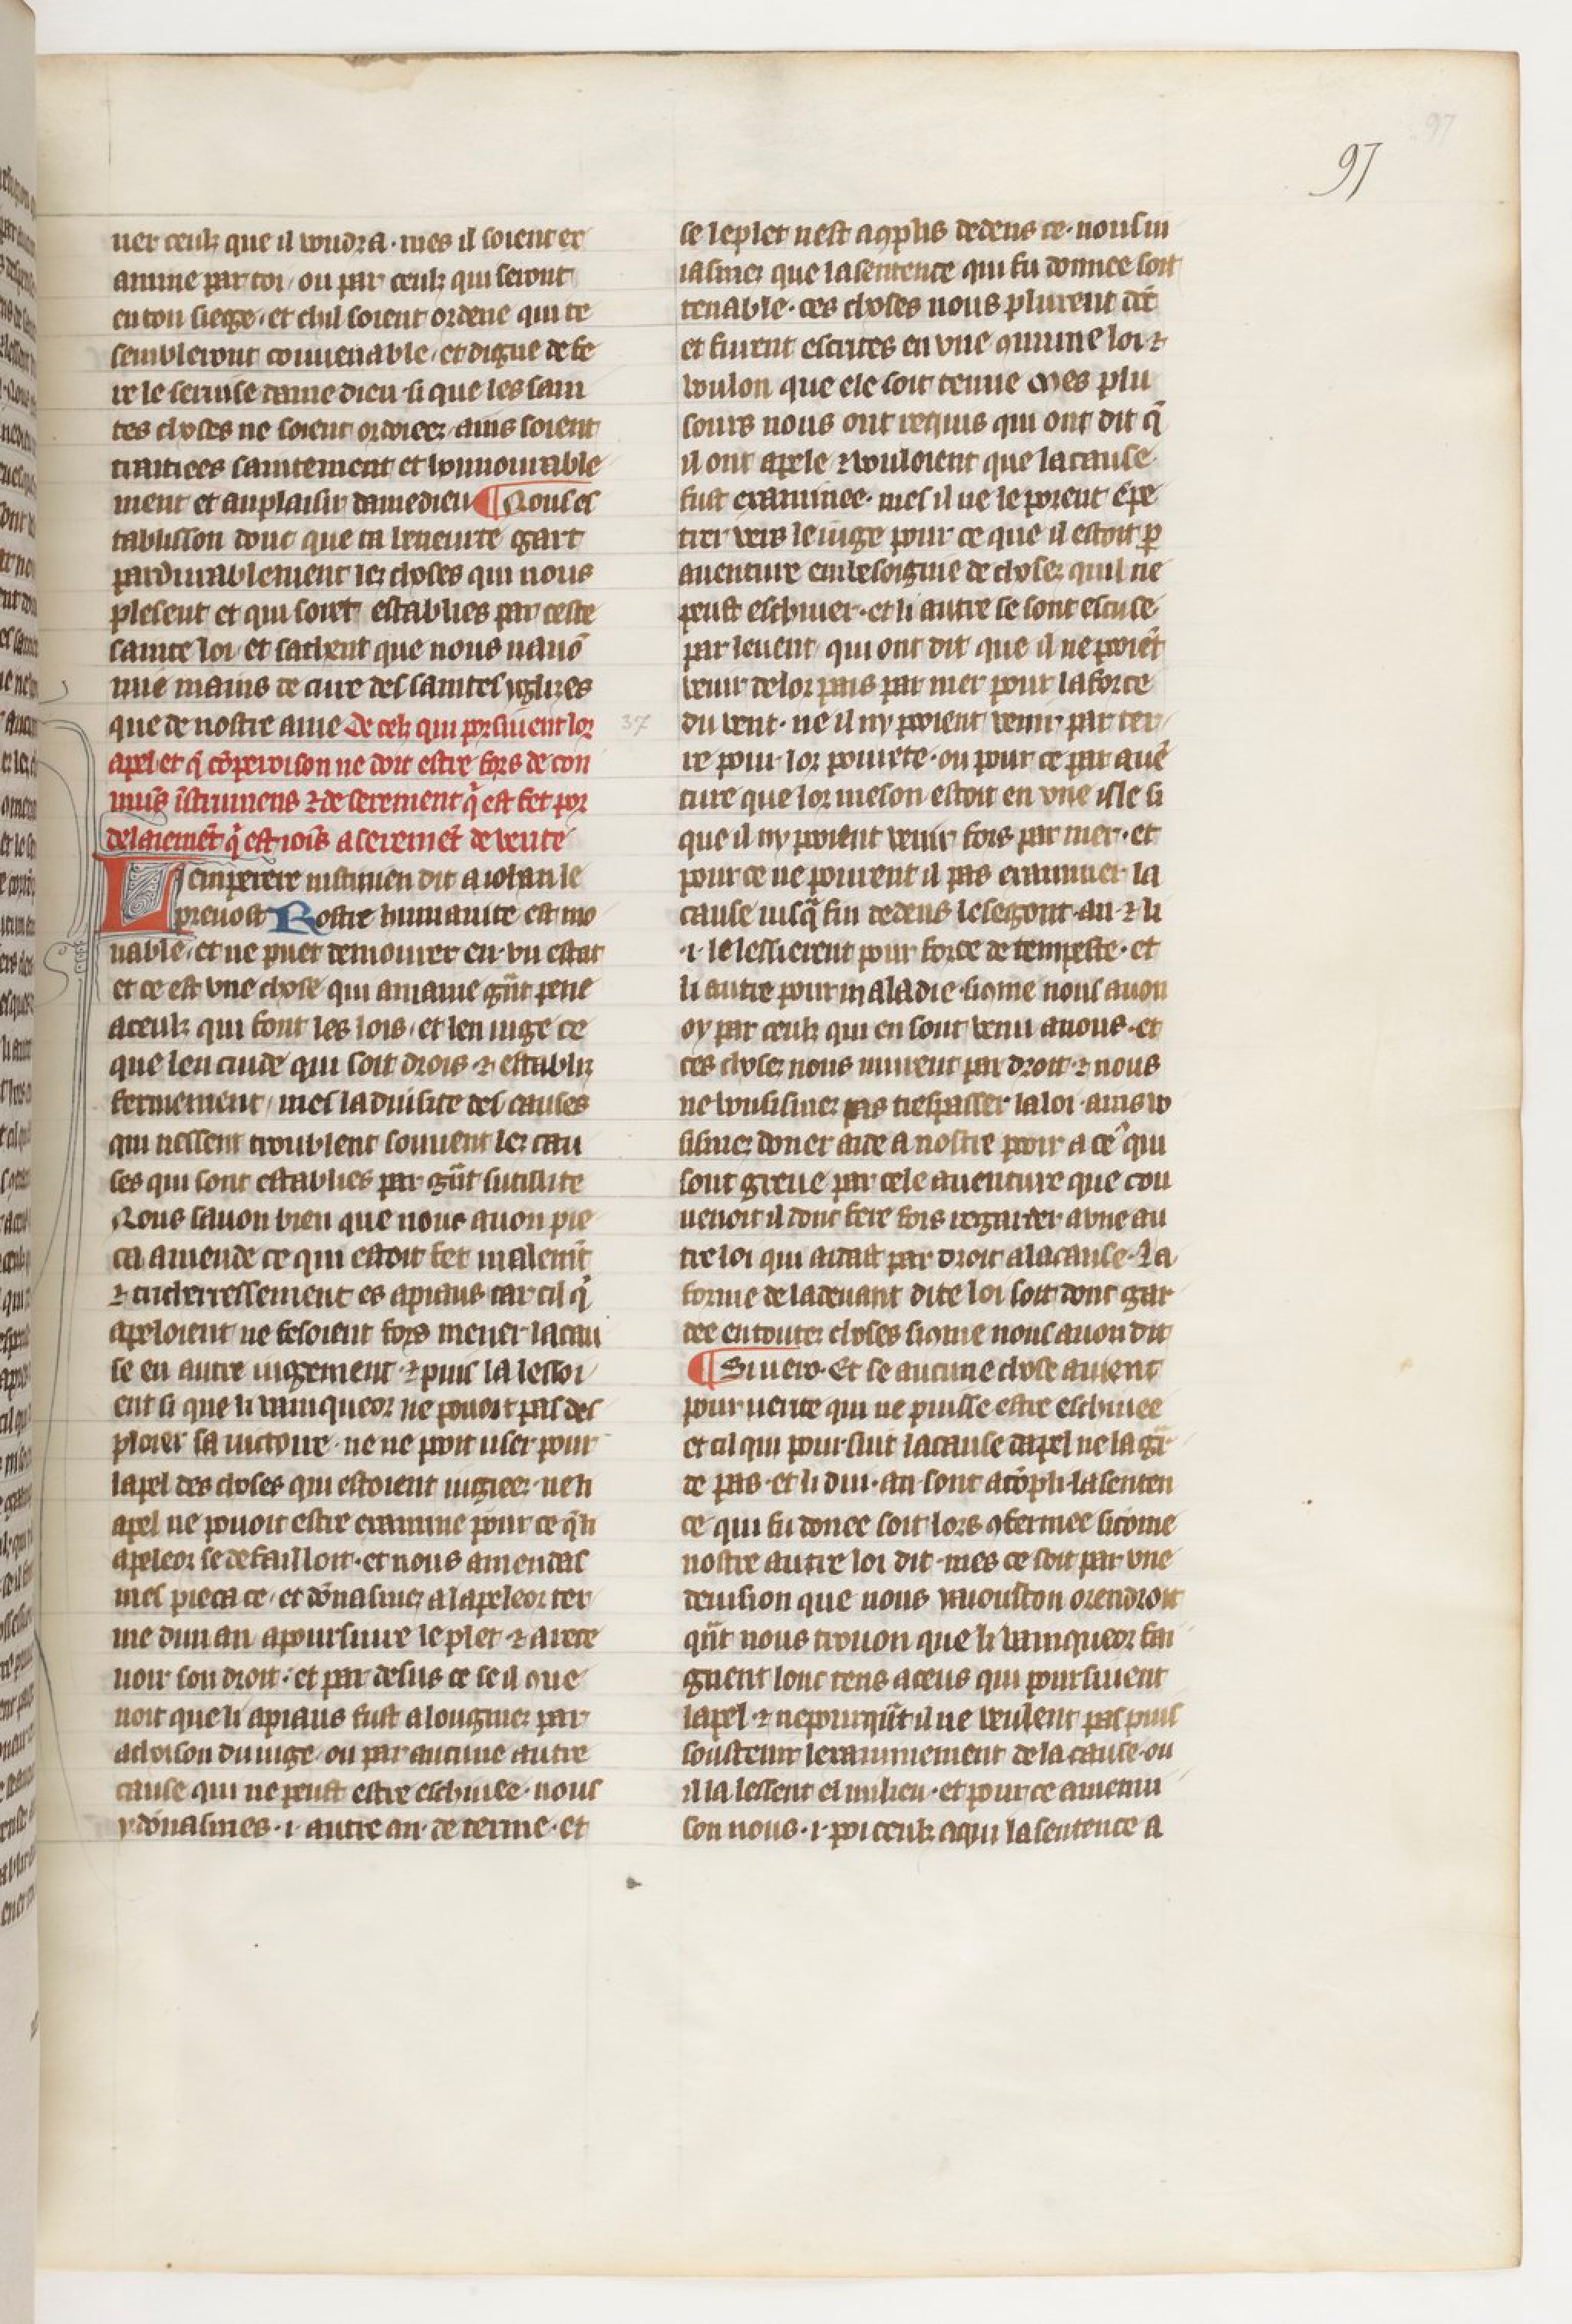 97
97
uer ceulz que il voudra · mes il soient ex
amine par toi / ou par ceulz qui seront
en ton siege · et chil soient ordene qui te
sembleront couuenable / et digne de fe
re le seruise dame dieu · si que les sain
tes choses ne soient ordoieez / ains soient
traitiees saintement et honnourable
ment et au plaisir damedieu ¶ Nous es
tablisson donc que ta beneurte gart
pardurablement lez choses qui nous
plesent et qui soiẽt establies par ceste
sainte loi · et sachent que nous nauõ
mie mains de cure des saintes yglises
que de nostre ame De celz qui porsiuent lor
37
apel et q̃ cõperoison ne doit estre fors de con
muñs ĩstrumens ⁊ de serement q̃ est fet por
delaiemẽt q̃ est ioĩs a seremẽt de verite
Lemperere iustinien dit a iohan le
preuost Nostre humanite est mo
uable / et ne puet demourer en · vn estat
et ce est vne chose qui amaine gñt pene
a ceulz qui font les lois / et len iuge ce
que len cuide qui soit drois · ⁊ establiz
fermement / mes la diuisite des causes
qui nessent troublent souuent lez cau
ses qui sont establies par gñt sutillite
Nous sauon bien que nous auon pie
ca amende ce qui estoit fet malemẽt
⁊ tricherressement es apiaus car cil q̃
apeloient ne fesoient fors mener la cau
se en autre iugement · ⁊ puis la lessoi
ent si que li vainqueor ne pouoit pas des
ploier sa uictoire · ne ne poit user pour
lapel des choses qui estoient iugieez · ne li
apel ne pouoit estre examine pour ce q̃ li
apeleor se defailloit · et nous amendas
mes pieca ce · et dõnasmez a lapeleor ter
me dun an a poursiure le plet · ⁊ a rete
noir son droit · et par desus ce se il cue
noit que li apiaus fust alougniez par
achoison du iuge · ou par aucune autre
cause qui ne peust estre eschiuee · nous
y dõnasmes · i · autre an · de terme · et
se le plet nest acõplis dedens ce · nous iu
iasmez que la sentence qui fu donnee soit
tenable · ces choses nous plurent dõc
et furent escrites en vne cõmune loi · ⁊
voulon que ele soit tenue Mes plu
sours nous ont requis qui ont dit q̃
il ont apele ⁊ vouloient que la cause
fust examinee · mes il ne le porent ẽpe
trer vers le iuge pour ce que il estoit p
auenture embesoignie de chosez quil ne
peust eschiuer · et li autre se sont escuse
par le uent / qui ont dit que il ne poiẽt
venir de lor pais par mer pour la force
du vent · ne il ny poient venir par ter
re pour lor pourete · ou pour ce par auẽ
ture que lor meson estoit en vne isle si
que il ny poient venir fors par mer · et
pour ce ne pourent il pas examiner la
cause iusq̃ fin dedens le segont · an · ⁊ li
· i · le lessierent pour force de tempeste · et
li autre pour maladie · si cõme nous auon
oy par ceulz qui en sont venu a nous · et
ces chosez nous murent par droit · ⁊ nous
ne vousismez pas trespasser la loi · ains vo
sismez doner aide a nostre pooir a cẽ qui
sont greue par cele auenture que cou
uenoit il donc fere fors regarder a vne au
tre loi qui aidast par droit a la cause · La
forme de la deuant dite loi soit donc gar
dee en toutez choses si cõme nous auon dit
¶ Si uero · Et se aucune chose auient
pour uerite qui ne puisse estre eschiuee
et cil qui pour siut la cause dapel ne la gar
de pas · et li dui · an · sont acõpli · la senten
ce qui fu donee soit lors cõfermee si cõme
nostre autre loi dit · mes ce soit par vne
deuision que nous i aiouston orendroit
qñt nous trouon que li vainqueor fai
gnent lonc tens a ceus qui poursiuent
lapel · ⁊ nepourqũt il ne veulent pas puis
soustenir lexaminement de la cause · ou
il la lessent el milieu · et pour ce amenui
son nous · i · poi ceulz a qui la sentence a